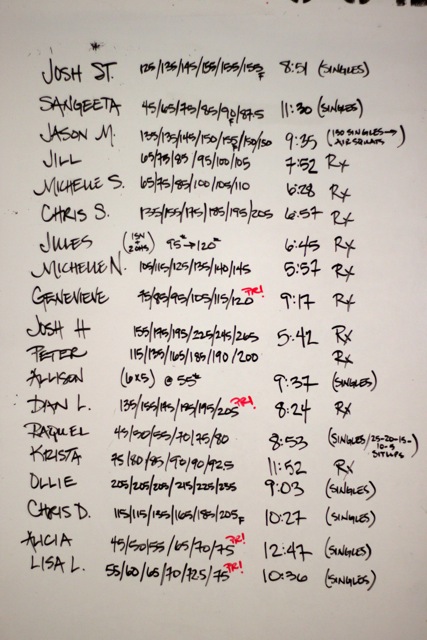 *
JOSH ST. 125/135/145/155/155/155F 8:51 (SINGLES)
SANGEETA 45/65/75/85/90F/87.5 11:30 (SINGLES)
JASON M. 135/135/145/150/155F/150/150 9:35 (150 SINGLES → AIR SQUATS)
JILL 65/75/85/95/100/105 7:52 Rx
MICHELLE S. 65/75/85/100/105/110 6:28 Rx
CHRIS S. 135/155/175/185/195/205 6:57 Rx
JULES (1SN + 2OHS) 95# → 120# 6:45 Rx
MICHELLE N. 105/115/125/135/140/145 5:57 Rx
GENEVIEVE 75/85/95/105/115/120 PR! 9:17 Rx
JOSH H 155/175/195/225/245/265 5:42 Rx
PETER 115/135/165/185/190/200 Rx
ALLISON (6x5) @ 55# 9:37 (SINGLES)
DAN L. 135/155/175/185/195/205 PR! 8:24 Rx
RAQUEL 45/50/55/70/75/80 8:53 (SINGLES/25-20-15-10-5 SITUPS)
KRISTA 75/80/85/90/90/92.5 11:52 Rx
OLLIE 205/205/205/215/225/235 9:03 (SINGLES)
CHRIS D. 115/115/135/165/185/205F 10:27 (SINGLES)
ALICIA 45/50/55/65/70/75 PR! 12:47 (SINGLES)
LISA L. 55/60/65/70/72.5/75 PR! 10:36 (SINGLES)